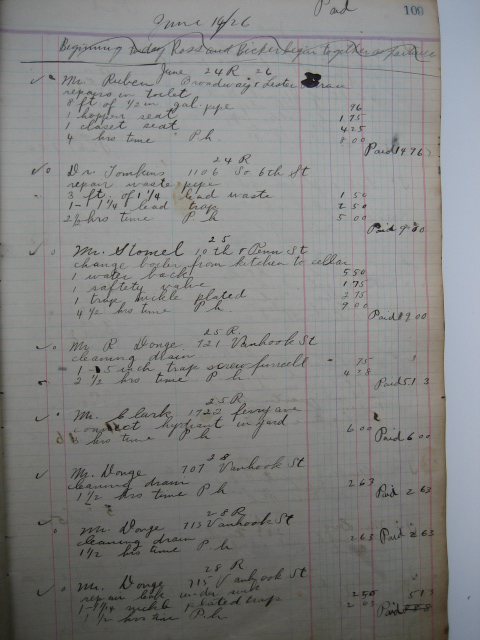 Paid 109
June 14/26
Beginning today Ross and Bicker began together as partners
June 24 R 26
Mr. Ruben Broadway & Lester Terrace
repairs on toilet
8 ft of 1/2 in gal. pipe 96
1 hopper seat 1 75
1 closet seat 4 25
4 hrs time P.h. 8 00
Paid 14 96
24 R
Dr. Tomkins 1106 So 6th St
repair waste pipe
3 ft of 1 1/4 lead waste 1 50
1 - 1 1/4 lead trap 2 50
2 1/2 hrs time P h 5 00
Paid 9 00
25
Mr. Stomel 10th & Penn St
change boiler from kitchen to cellar
1 water back 5 50
1 saftety valve 1 75
1 trap nickle plated 2 75
4 1/2 hrs time P. h 9 00
Paid 19 00
25 R.
Mr R Donge 721 Vanhook St
cleaning drain
1 - 5 inch trap screw furcell 75
2 1/2 hrs time P h 4 38
Paid 5 1 3
25 R
Mr. Clark 1722 ferry ave
connect hydrant in yard
3 hrs time P h 6 00
Paid 6 00
28
Mr. Donge 707 Vanhook St
cleaning drain
1 1/2 hrs time P h 2 63
Paid 2 63
28 R
Mr Donge 715 Vanhook St
cleaning drain
1 1/2 hrs time P h 2 63 Paid 2 63
28 R
Mr. Donge 715 Vanhook St
repair under sink
1 - 1 1/4 nickle plated trap 2 50 5 13
1 1/2 hrs time P.h. 2 63 Paid